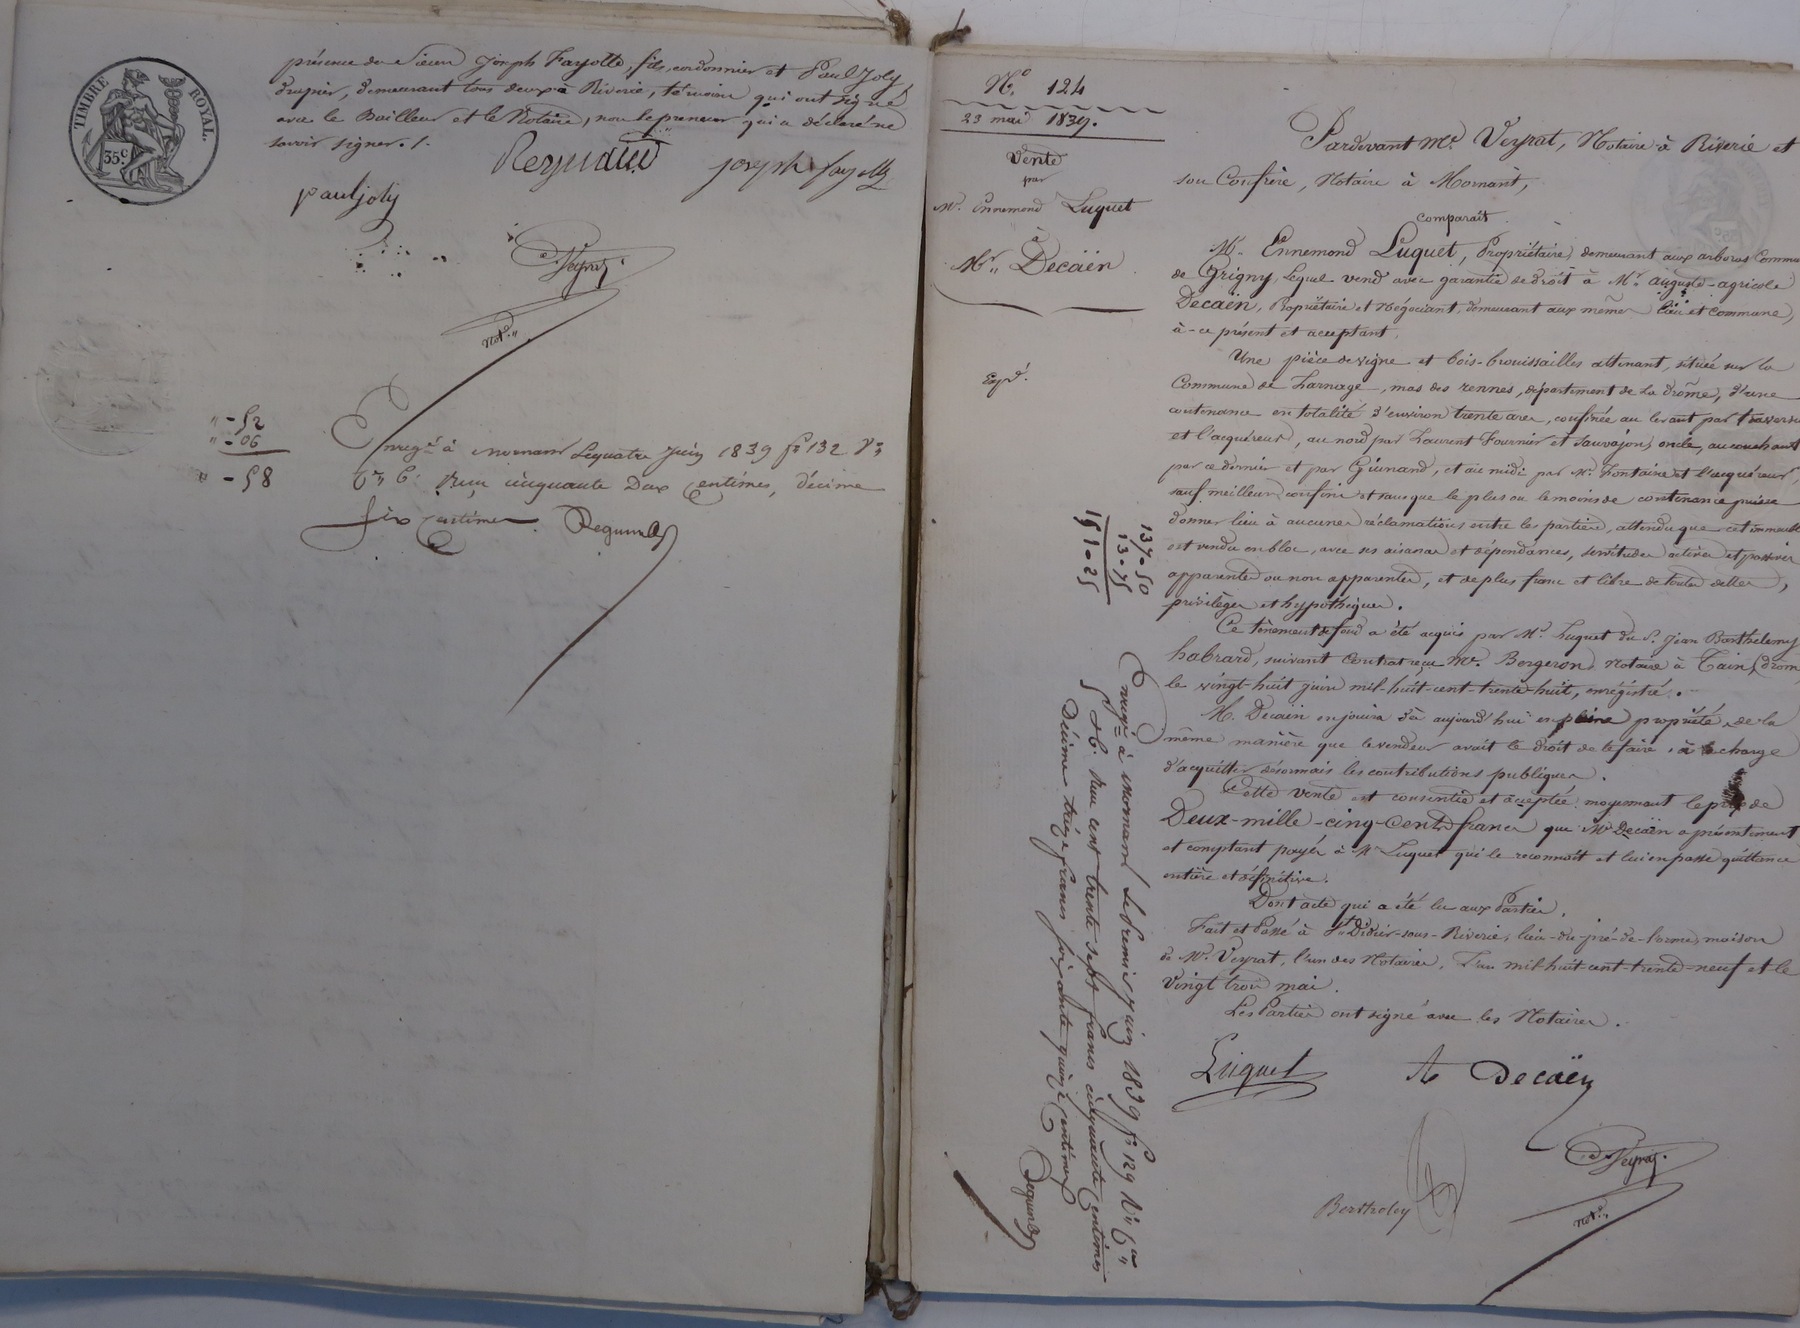 TIMBRE ROYAL.
35c
présence de Sieur Joseph Fayolle, fils, cordonnier et Paul Joly
drapier, demeurant tous deux à Riverie, témoins qui ont signé
avec le Bailleur et le Notaire, non le preneur qui a déclaré ne
savoir signer ./.
Reynaud
joseph fayolle
paul joly
Veyrat
not.re
" - 52
" - 06
" - 58
Enreg.é à Mornant le quatre Juin 1839 f° 132 V°
C.es 6. Reçu cinquante Deux Centimes, décime
six centimes.
N.° 124
23 mai 1839.
Vente
par
M.r Ennemond Luquet
à
M.r Decaën
Exp.é.
Pardevant M.e Veyrat, Notaire à Riverie et
son Confrère, Notaire à Mornant,
comparait
M.r Ennemond Luquet, Propriétaire demeurant aux arboras Commune
de Grigny, lequel vend avec garantie de droit à M.r auguste-agricole
Decaën, Propriétaire et Négociant, demeurant aux mêmes lieu et commune,
à-ce présent et acceptant.
Une pièce de vigne et bois-brouissailles attenant, située sur la
Commune de Larnage, mas des rennes, département de la Drôme, d'une
contenance en totalité d'environ trente ares, confinée au levant par
et l'acquéreur, au nord par Laurent Fournier et Sauvajon, oncle, au couchant
par ce dernier et par Guinand, et au midi par M.r Fontaine et l'acquéreur,
sauf meilleurs confins et sans que le plus ou le moins de contenance puisse
donner lieu à aucunes réclamations entre les parties, attendu que cet immeuble
est vendu en bloc, avec ses aisances et dépendances, servitudes actives et passives
apparentes ou non apparentes, et de plus franc et libre de toutes dettes,
privilèges et hypothèques.
Ce tènement de fond a été acquis par M.r Luquet du S.r Jean Barthelemy
habrard, suivant Contrat reçu M.e Bergeron Notaire à Tain, (drôme
le vingt-huit juin mil-huit-cent-trente-huit, enrégistré.
M. Decaën en jouira dès aujourd'hui en pleine propriété, de la
même manière que le vendeur avait le droit de le faire, à la charge
d'acquitter désormais les contributions publiques.
Cette vente est consentie et acceptée moyennant le prix de
Deux-mille-cinq-Cents francs que M.r Decaën a présentement
et comptant payés à M.r Luquet qui le reconnoit et lui en passe quittance
entière et définitive.
Dont acte qui a été lu aux Parties.
Fait et Passé à S.t Didier-sous-Riverie, lieu-du-pré-de-l'orme, maison
de M.e Veyrat, l'un des Notaires, l'an mil-huit-cent-trente-neuf et le
Vingt trois mai.
Les Parties ont signé avec les Notaires.
Luquet
A Decaën
Veyrat
Bertholey
not.re
137 - 50
13 - 75
151 - 25
Enreg.é à Mornant le Premier Juin 1839 f° 129 V° C.es
5 et 6. Reçu cent trente sept francs cinquante Centimes
Décime treize francs soixante quinze Centimes